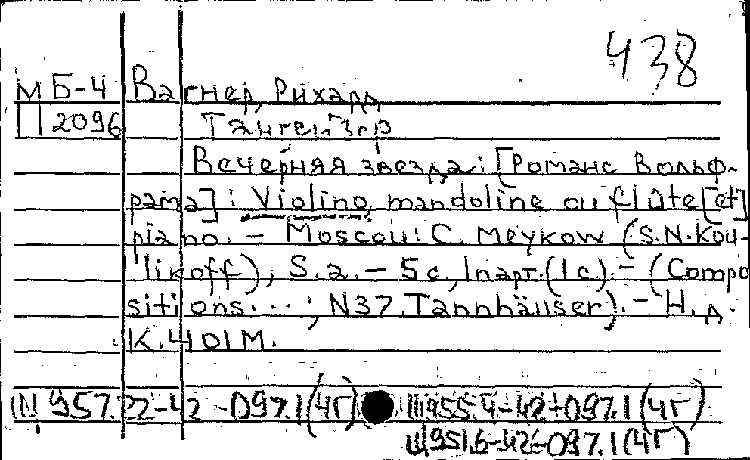 438
М Б-4 Вагнер, Рихард
П 2096 Тангейзер
Вечерняя звезда: [Романс Вольф-
рама]: Violino, mandoline ou flûte [et]
piano. – Moscou: C. Meykow (S.N. Kou-
likoff), S.a. – 5 с., 1 парт. (1 с.) – (Compo
sitions...; N37. Tannhäuser). – Н.д.
К. 401 М.
Щ957.22-42-097.1(4Г) Щ955.4-42-097.1(4Г)
Щ951.6-42-097.1(4Г)